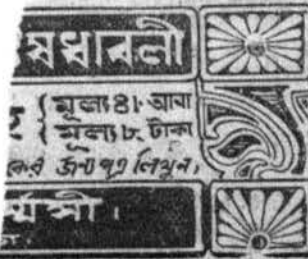 ষধাবলী
{ মূল্য ৪৷৹ আনা
{ মূল্য ৮৲ টাকা
কের জন্য পত্র লিখুন,
র্ম্মসী।